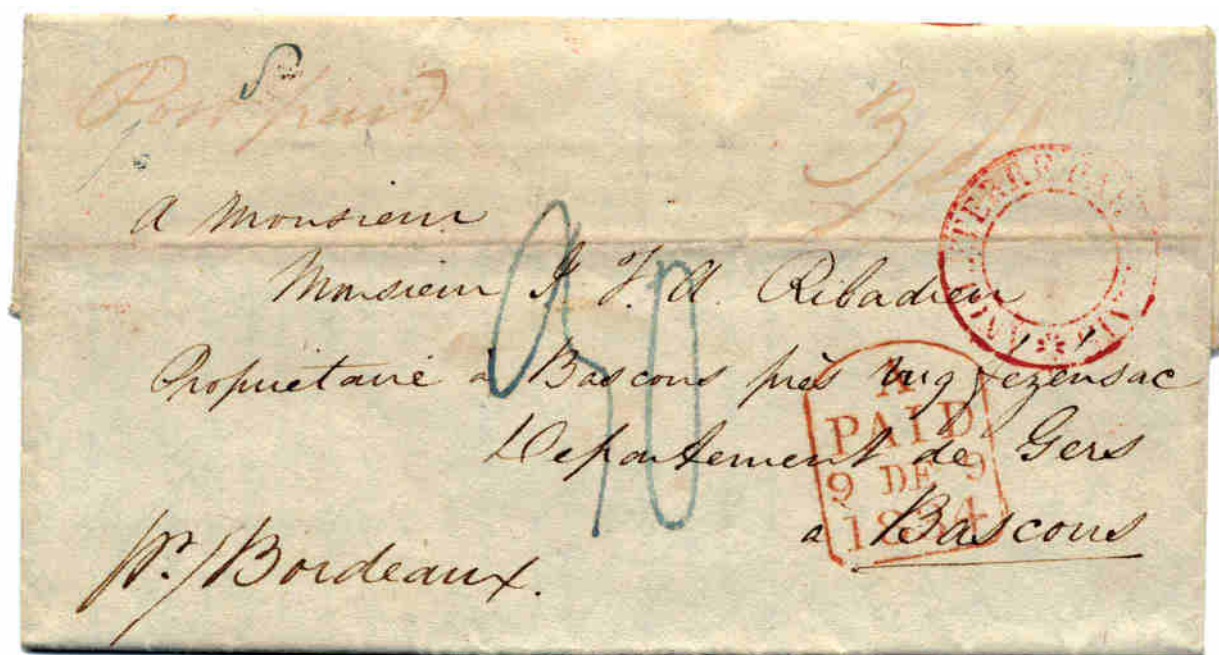 Post paid
3/
A Monsieur
Monsieur J. F. A. Ribadieu
Propriétaire a Bascous près Vic fezensac
Departement de Gers
a Bascous
pr./Bordeaux.
A
PAID
9 DE 9
1834
ANGLETERRE PAR